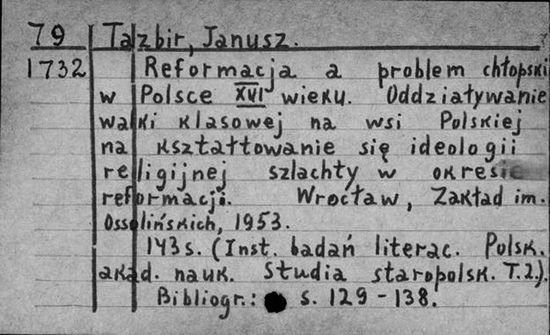 79 Tazbir, Janusz.
1732 Reformacja a problem chłopski
w Polsce XVI wieku. Oddziaływanie
walki klasowej na wsi Polskiej
na kształtowanie się ideologii
religijnej szlachty w okresie
reformacji. Wrocław, Zakład im.
Ossolińskich, 1953.
143 s. (Inst. badań literac. Polsk.
akad. nauk. Studia staropolsk. T.2.).
Bibliogr.: s. 129 - 138.